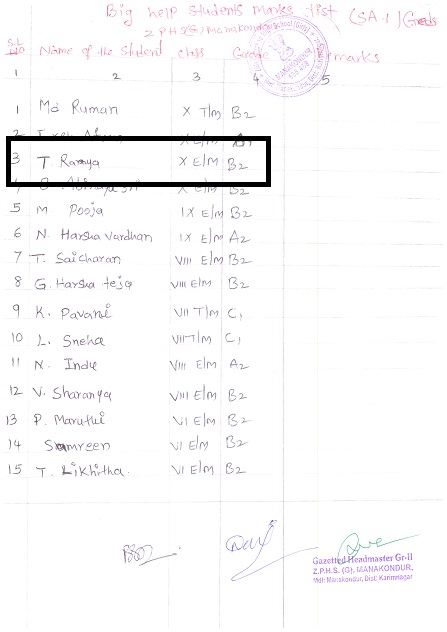 Big help students marks list (SA-1) Grads
Z P H S (G) Manakondur
S.L No Name of the Student class Grade Remarks
1 2 3 4 5
1 Md Ruman X T/m B2
2
3 T. Ramya X E/M B2
4
5 M Pooja IX E/m B2
6 N. Harsha vardhan IX E/m A2
7 T. Saicharan VIII E/m B2
8 G. Harsha teja VIII E/m B2
9 K. Pavani VII T/m C1
10 L. Sneha VII T/m C1
11 N. Indu VIII E/m A2
12 V. Sharanya VIII E/m B2
13 P. Maruthi VI E/m B2
14 Samreen VI E/m B2
15 T. Likhitha. VI E/M B2
Gazetted Headmaster Gr-II
Z.P.H.S. (G). MANAKONDUR,
Mdl: Manakondur, Dist: Karimnagar